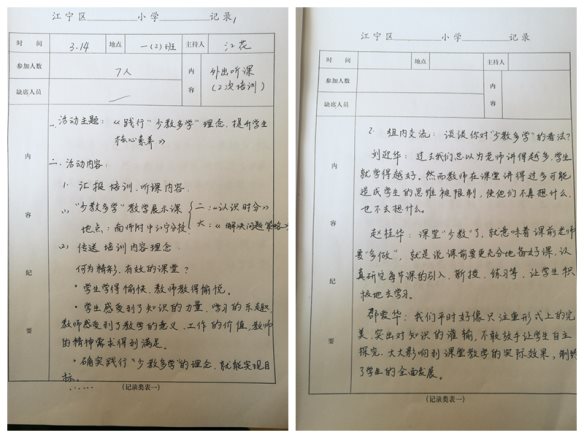 江宁区 小学 记录
时间 3.14 地点 一(2)班 主持人 江花
参加人数 7人 内容 外出听课
(2次培训)
缺席人员
内容纪要
一、活动主题：《践行"少教多学"理念，提升学生
核心素养》
二、活动内容：
1. 汇报培训、听课内容
(1) "少教多学"教学展示课 二：《认识时分》
地点：南师附中江宁分校 六：《解决问题策略》
(2) 传达培训内容理念：
何为精彩、有效的课堂？
·学生学得愉快，教师教得愉悦。
·学生感受到了知识的力量，学习的乐趣，
教师感受到了教学的意义，工作的价值，教师
的精神需求得到满足。
·确实践行"少教多学"的理念，就能实现目
标。
……
(记录类表一)
江宁区 小学 记录
时间 地点 主持人
参加人数 内容
缺席人员
内容纪要
2. 组内交流：谈谈你对"少教多学"的看法？
过去我们总以为老师讲得越多，学生
就学得越好。然而教师在课堂讲得过多可能
造成学生的思维被限制，使他们不再想什么，
也不去想什么。
赵桂华：课堂"少教"了，就意味着课前老师
要"多做"，就是说课前要更充分地备好课，认
真研究每节课的引入、新授、练习等，让学生积
极地去学习。
我们平时好像只注重形式上的完
美，突出对知识的灌输，不敢放手让学生自主
探究，大大影响到课堂教学的实际效果，
了学生的全面发展。
(记录类表一)